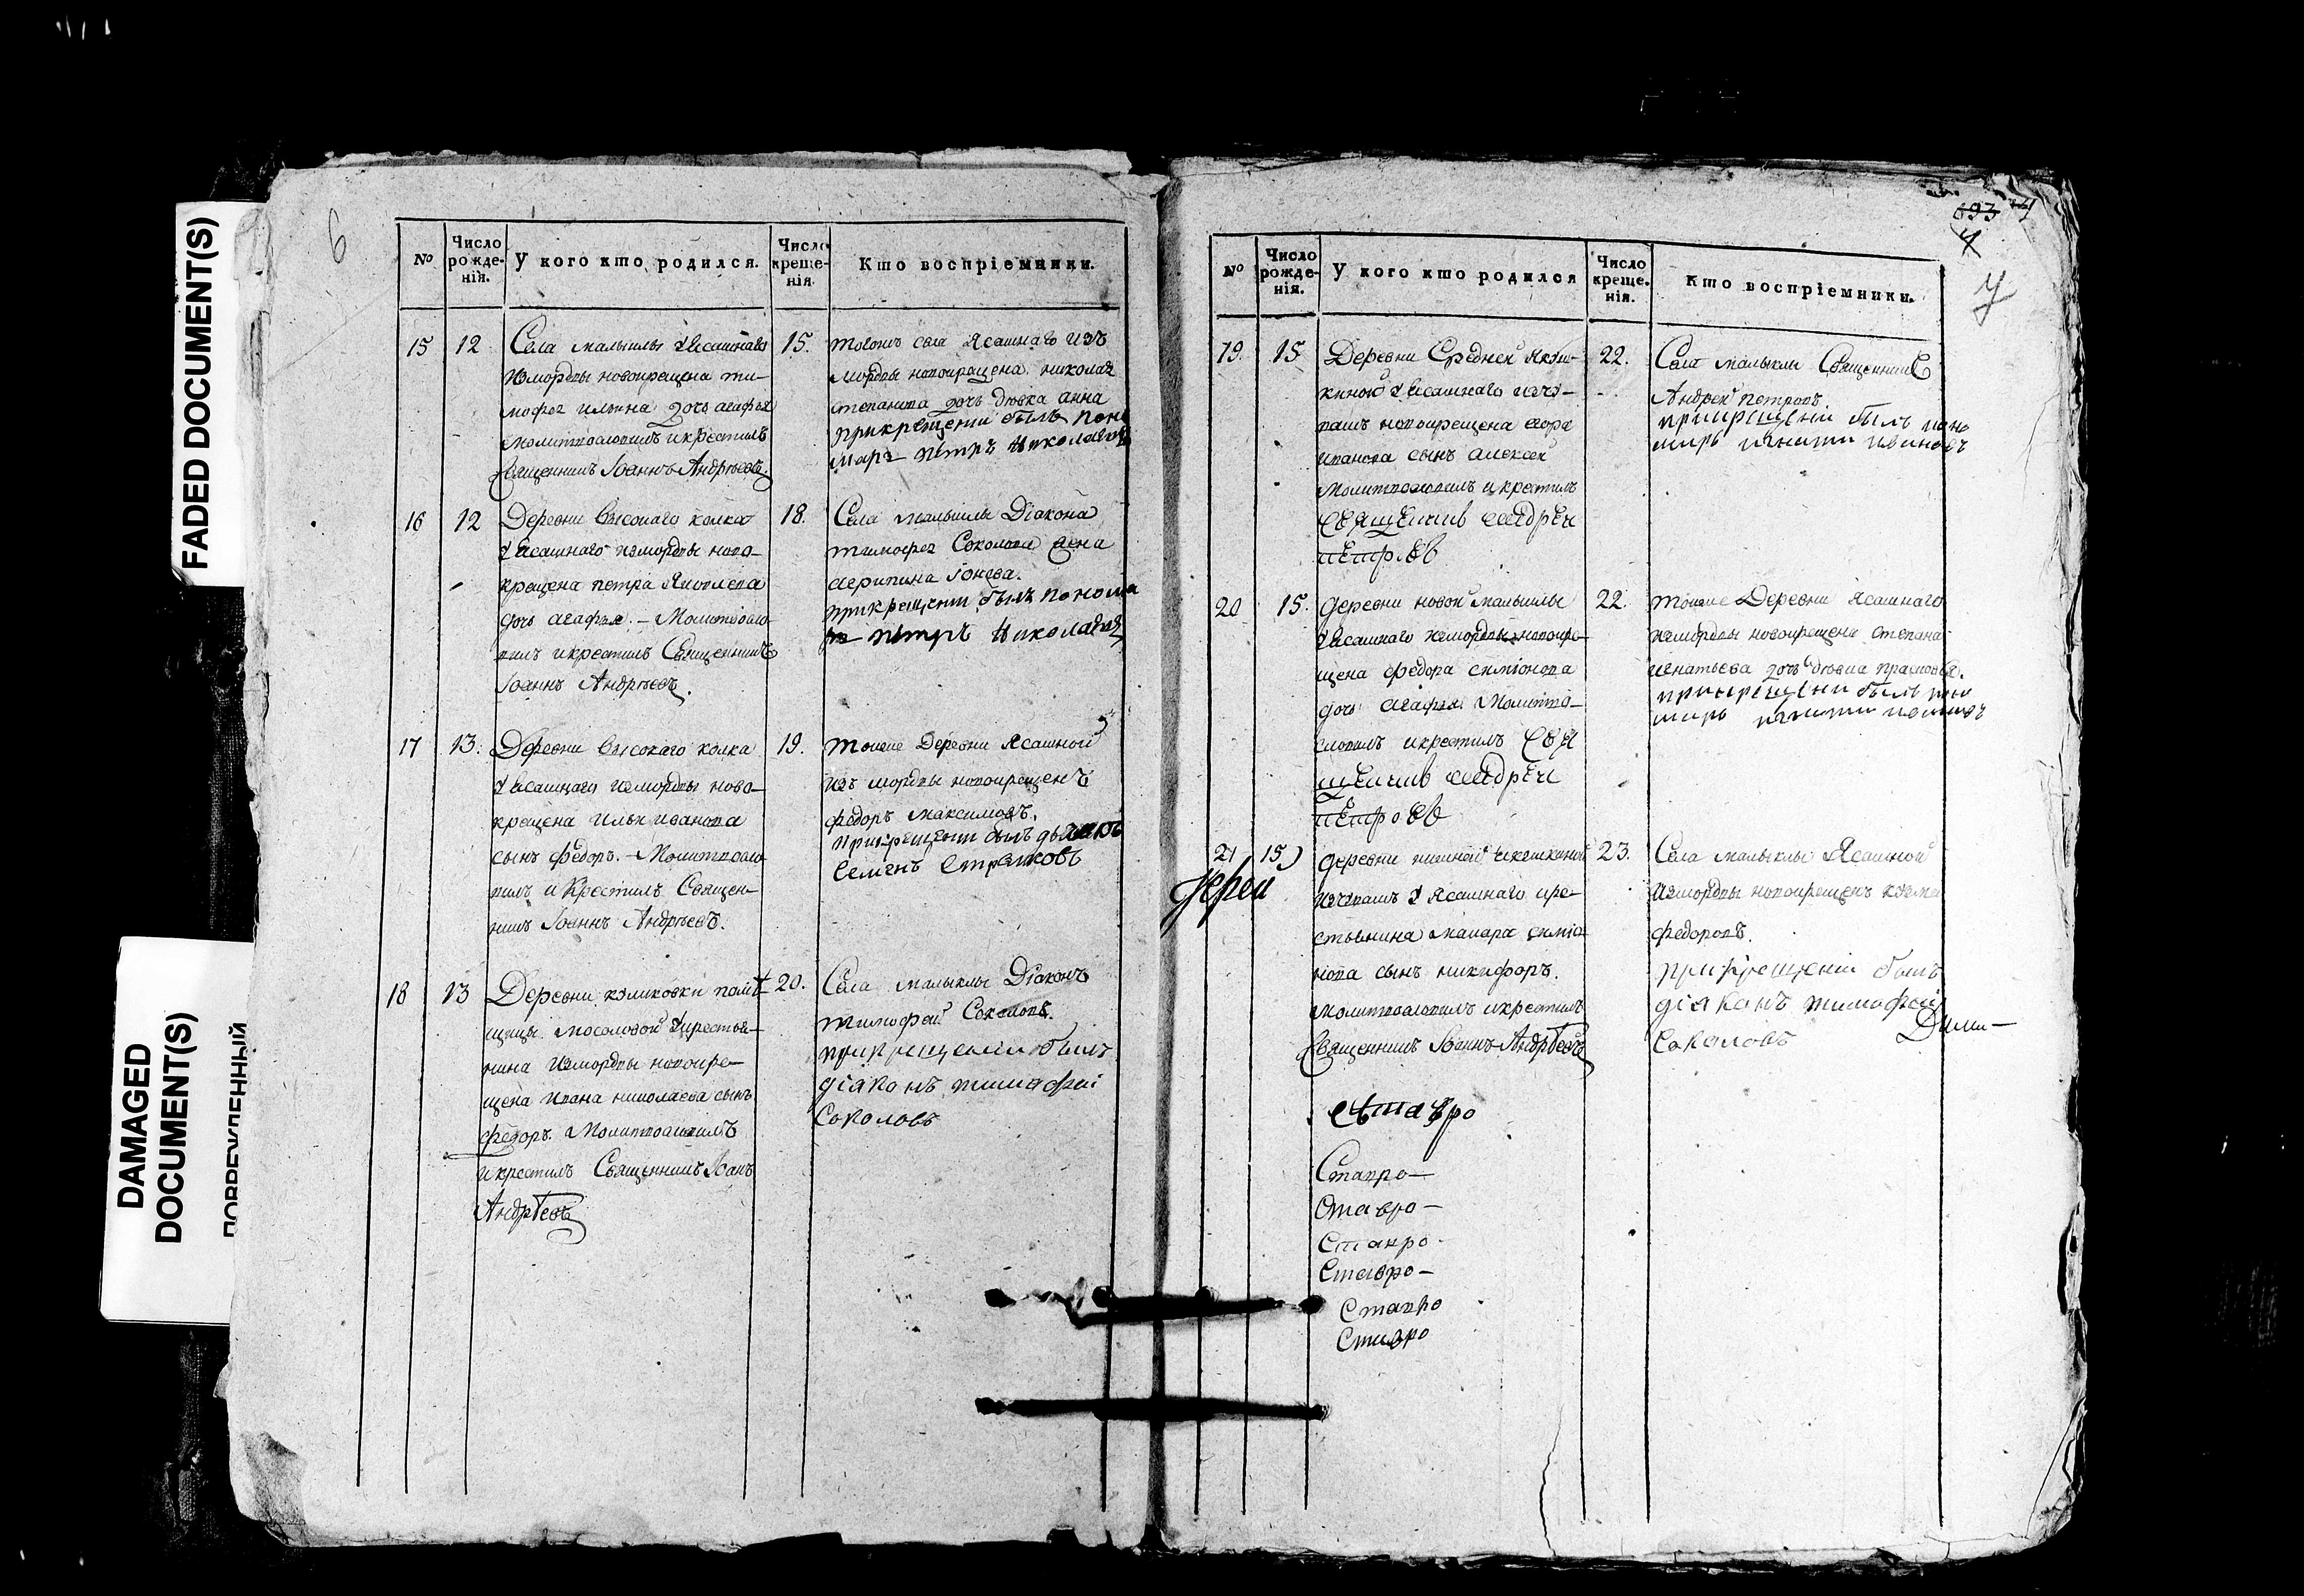 FADED DOCUMENT(S)
DAMAGED
DOCUMENT(S)
6
№
Число рожде-нія.
У кого кто родился.
Число креще-нія.
Кто воспріемники.
15 12 Села малыклы Ясашнаго
измордвы новокрещена ти-
мофея ильина дочь агафья
молитвословилъ икрестилъ
Священникъ Іоаннъ Андрѣевъ.
15. тогожъ села Ясашнаго изъ
мордвы новокрещена николая
степанова дочь дѣвка анна
прикрещении былъ поно
марь петръ Николаевъ
16 12 Деревни высокаго колка
Ясашнаго измордвы ново-
крещена петра Яковлева
дочь агафья. — Молитвосло-
вилъ икрестилъ Священникъ
Іоаннъ Андрѣевъ.
18. Села малыклы Діакона
тимофея Соколова жена
агрипина
прикрещении былъ понома
рь петръ Николаевъ
17 13. Деревни высокаго колка
Ясашнаго измордвы ново-
крещена ильи иванова
сынъ федоръ. — Молитвосло-
вилъ и Крестилъ Священ-
никъ Іоаннъ Андрѣевъ.
19. тоѣже Деревни Ясашной
изъ мордвы новокрещенъ
федоръ максимовъ.
прикрещении былъ дьячекъ
Семенъ
18 13 Деревни помѣ-
щицы мосоловой крестья-
нина измордвы новокре-
щена ивана николаева сынъ
федоръ. Молитвословилъ
икрестилъ Священникъ Іоанъ
Андрѣевъ
20. Села малыклы Діаконъ
тимофей Соколовъ.
прикрещении былъ
діаконъ тимофей
Соколовъ
693
7
7
№
Число рожде-нія.
У кого кто родился
Число креще-нія.
Кто воспріемники.
19. 15 Деревни Средней Якуш-
киной Ясашнаго изчу-
вашъ новокрещена
иванова сынъ алексей
молитвословилъ икрестилъ
священикъ андрей
петровъ
22. Села малыклы Священникъ
Андрей петровъ.
прикрещении былъ поно
марь иванов
20 15. деревни новой малыклы
Ясашнаго измордвы новокре-
щена федора симіонова
дочь агафья Молитво-
словилъ икрестилъ свя
щеникъ андрей
петровъ
22. тоѣже Деревни Ясашнаго
измордвы новокрещена степана
игнатьева дочь дѣвка прасковья.
прикрещении былъ поно
марь
21 15 деревни нижней якушкиной
изчувашъ Ясашнаго кре-
стьянина макара симіо-
нова сынъ никифоръ.
молитвословилъ икрестилъ
Священникъ Іоаннъ Андрѣевъ
23. Села малыклы Ясашной
измордвы новокрещенъ козма
федоровъ.
прикрещении былъ
діаконъ тимофей
Соколовъ
Іерей
Ставро
Ставро—
Ставро—
Ставро-
Ставро—
Ставро
Ставро